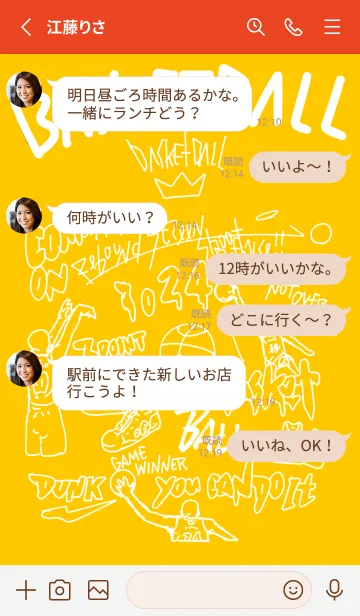 江藤りさ
明日昼ごろ時間あるかな。
一緒にランチどう？
12:10
BASKETBALL
既読
12:14
いいよ～！
何時がいい？
既読
12時がいいかな。
既読
12:17
どこに行く～？
NOT OVER
FRONT
駅前にできた新しいお店
行こうよ！
BALL
既読
12:19
いいね、OK！
GAME
WINNER
DUNK
YOU CAN DO It